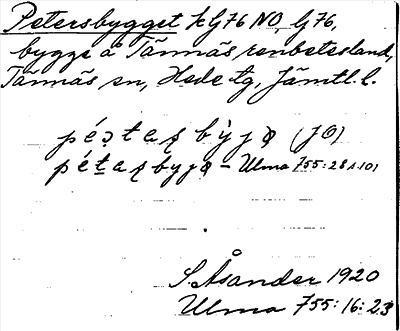 Petersbygget k G76 NO, G76,
bygge å Tännäs renbetesland,
Tännäs sn, Hede tg, Jämtl. l.
péətaʂ bỳjə (JÖ)
pétaʂbyjə – Ulma 755:28 s. 101
S. Åsander 1920
Ulma 755:16:23